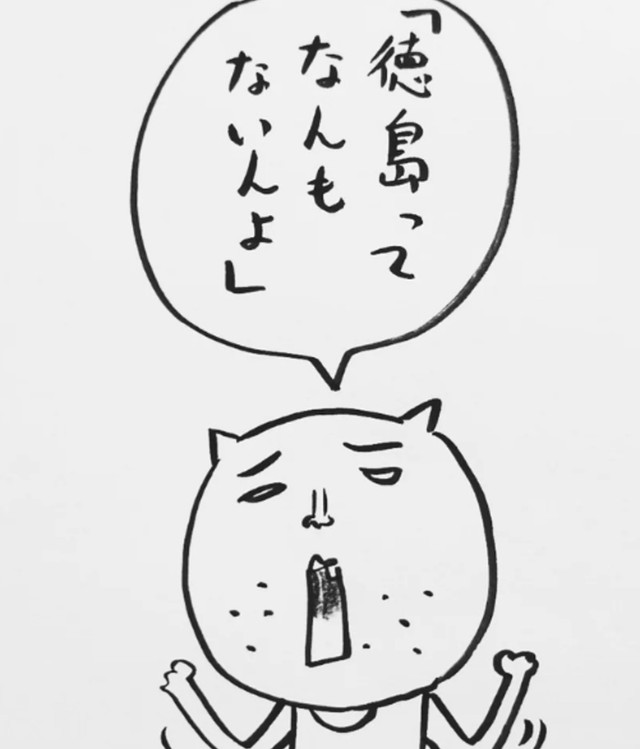 「徳島って
なんも
ないんよ」